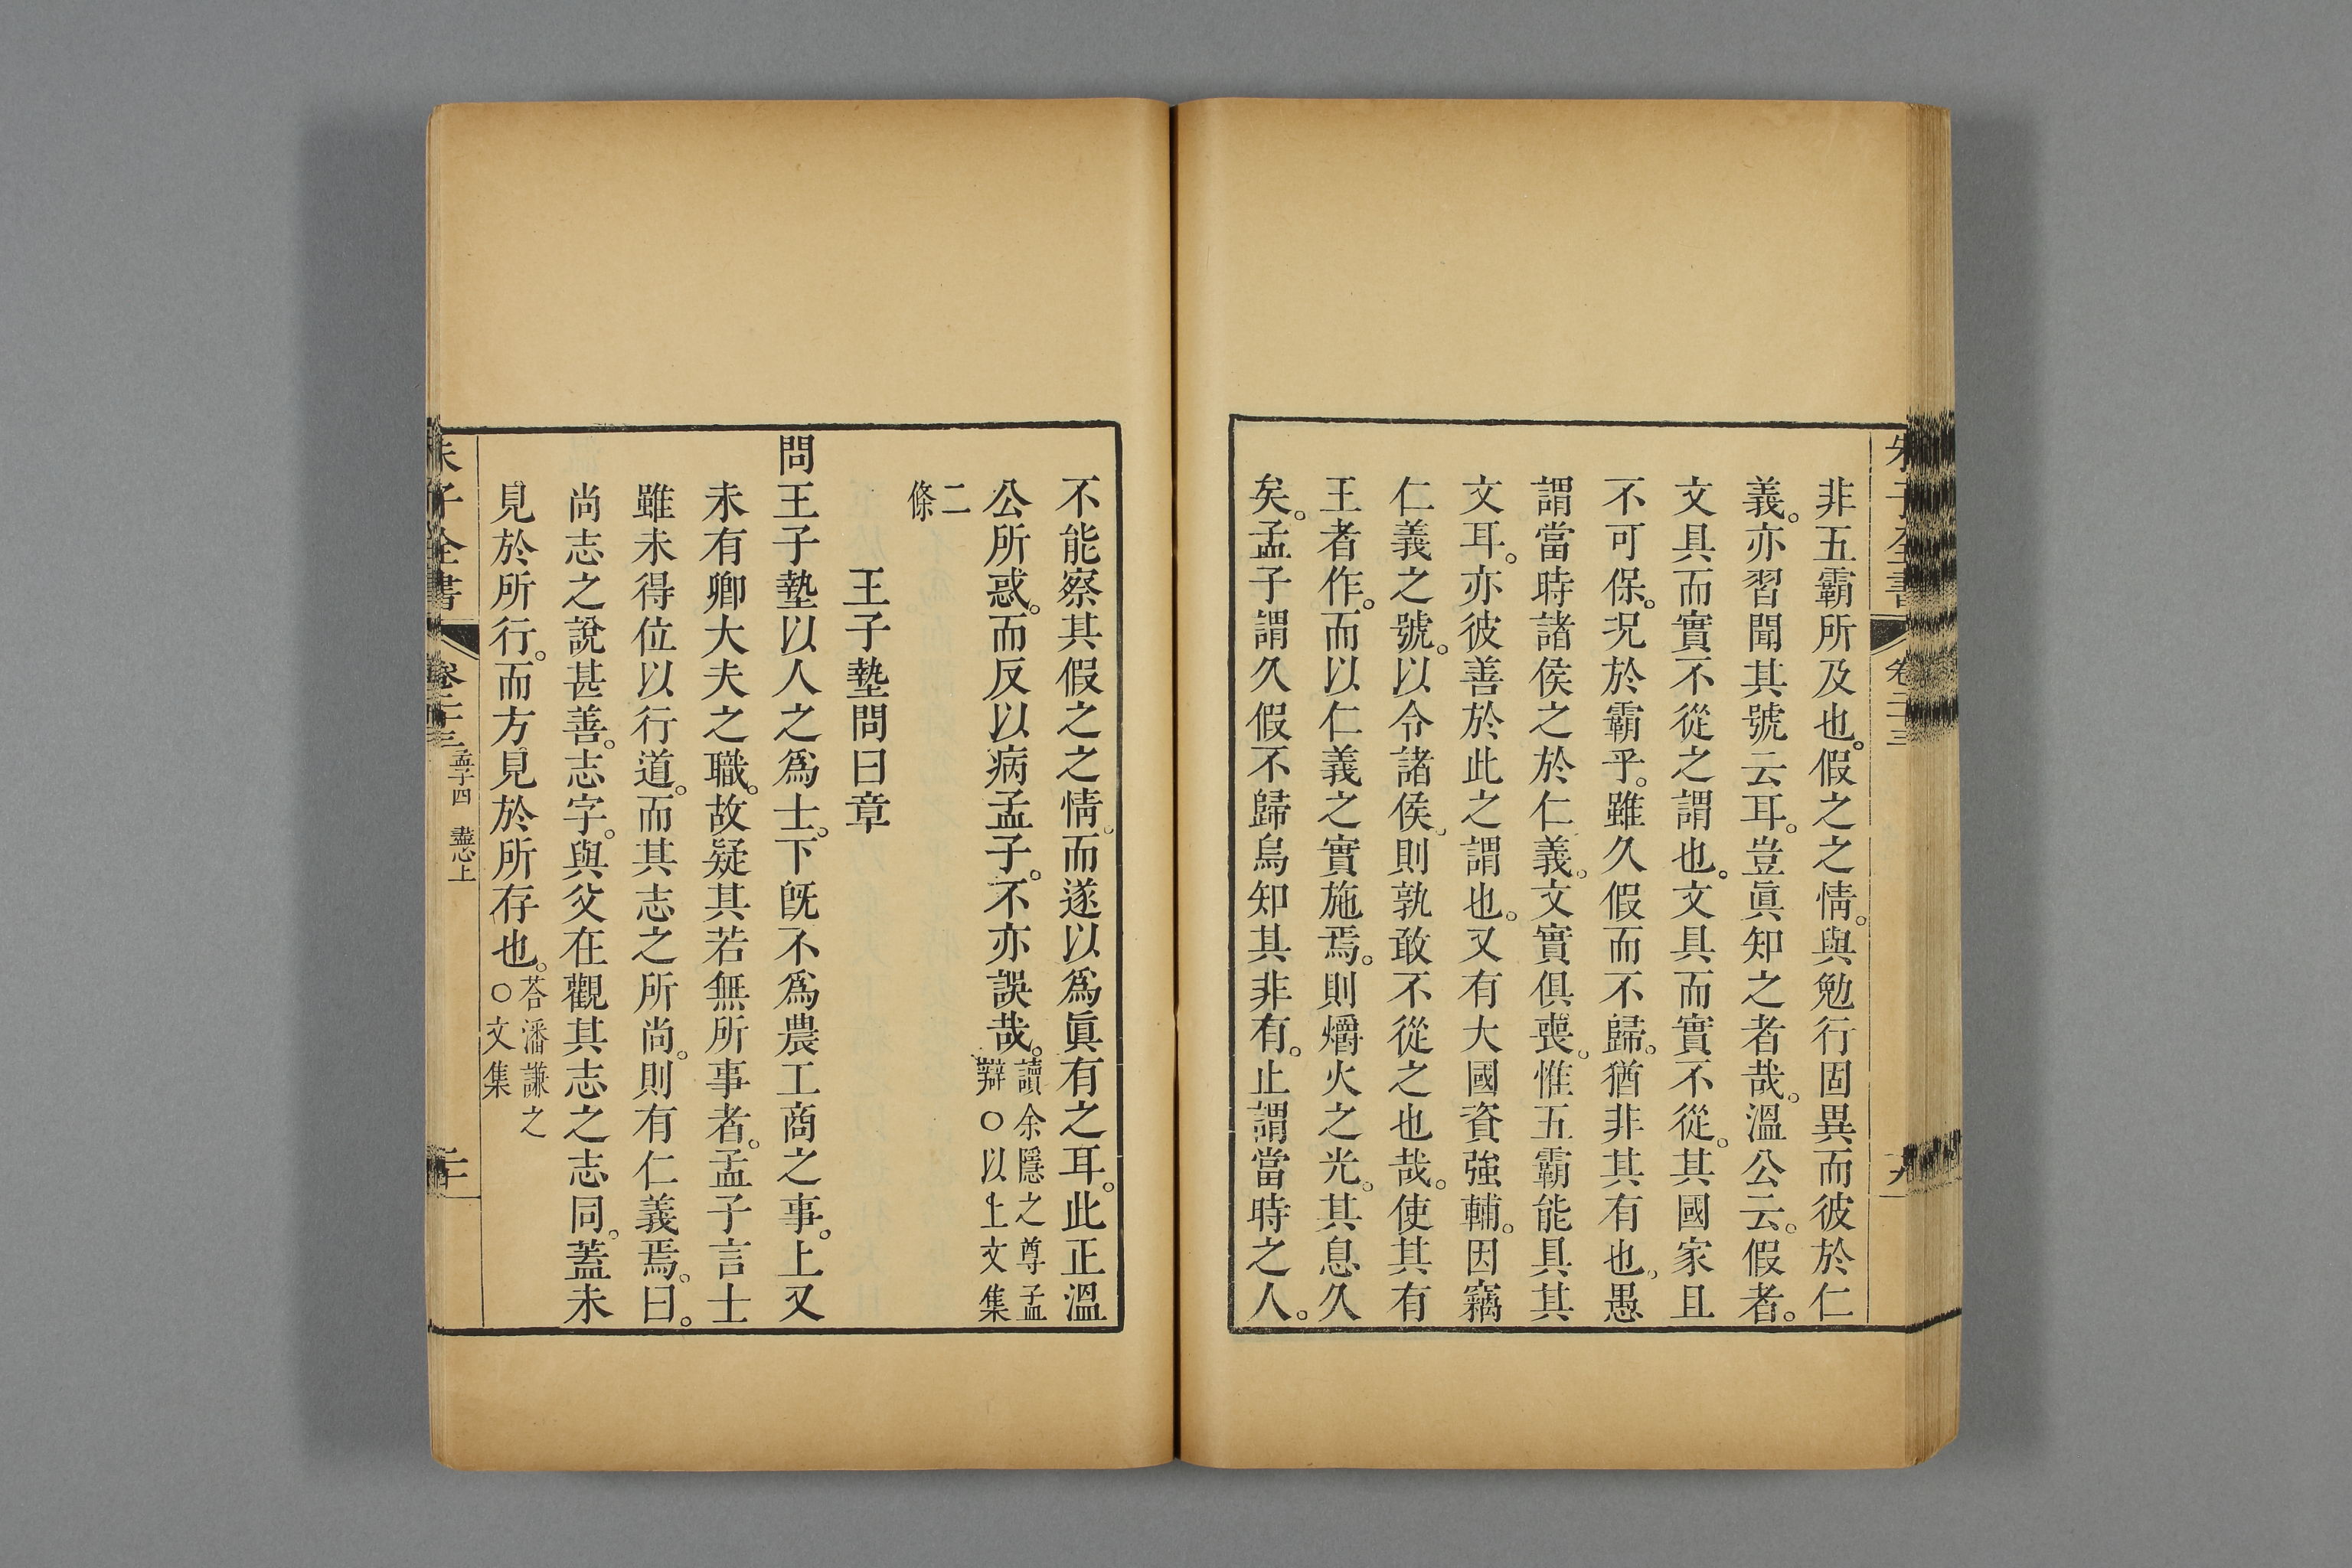 朱子全書 卷二十三 十九
非五霸所及也。假之之情。與勉行固異而彼於仁
義。亦習聞其號云耳。豈眞知之者哉。溫公云。假者。
文具而實不從之謂也。文具而實不從。其國家且
不可保。況於霸乎。雖久假而不歸。猶非其有也。愚
謂當時諸侯之於仁義。文實俱喪。惟五霸能具其
文耳。亦彼善於此之謂也。又有大國資強輔。因竊
仁義之號。以令諸侯。則孰敢不從之也哉。使其有
王者作。而以仁義之實施焉。則爝火之光。其息久
矣。孟子謂久假不歸烏知其非有。止謂當時之人。
不能察其假之之情。而遂以爲眞有之耳。此正溫
公所惑。而反以病孟子。不亦誤哉。讀余隱之尊孟
辯○以上文集
二
條
王子墊問曰章
問王子墊以人之爲士。下旣不爲農工商之事。上又
未有卿大夫之職。故疑其若無所事者。孟子言士
雖未得位以行道。而其志之所尚。則有仁義焉。曰。
尚志之說甚善。志字。與父在觀其志之志同。蓋未
見於所行。而方見於所存也。荅潘謙之
○文集
朱子全書 卷二十三 孟子四 盡心上 二十